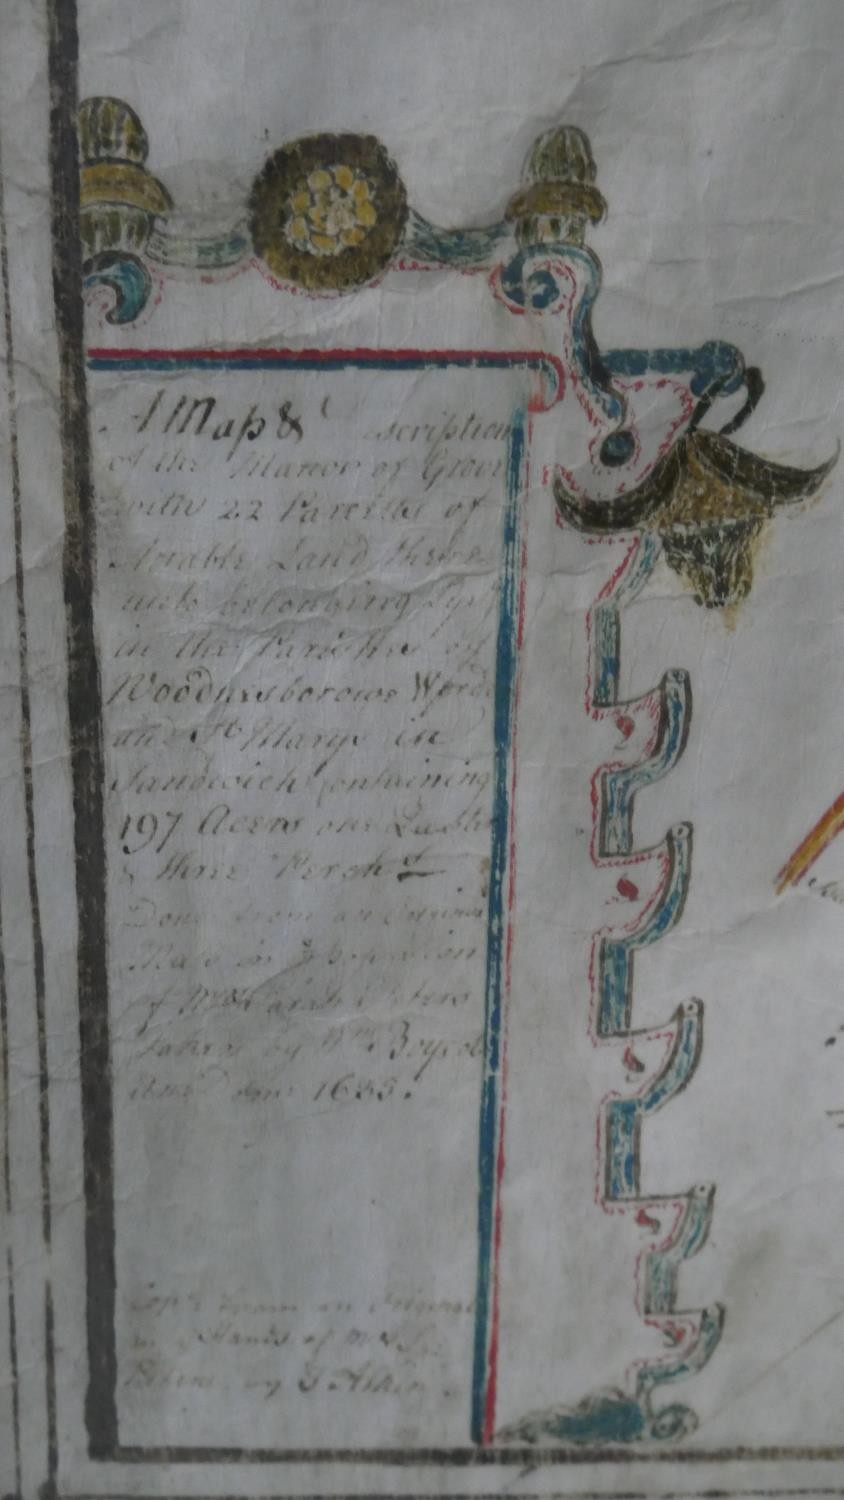 A Map & scription
of the Manor of Grove
with 22 Parcells of
Arrable Land there
unto belonging Lys
in the Parishes of
Woodnisborowe Word
and St Marys in
Sandwich Containing
197 Acers one
& three Perch
Done from an Origin
in
of Mrs Sarah Peters
taken by Wm Boycot
Dom 1635.
from an Original
in Hands of
by J Atkin